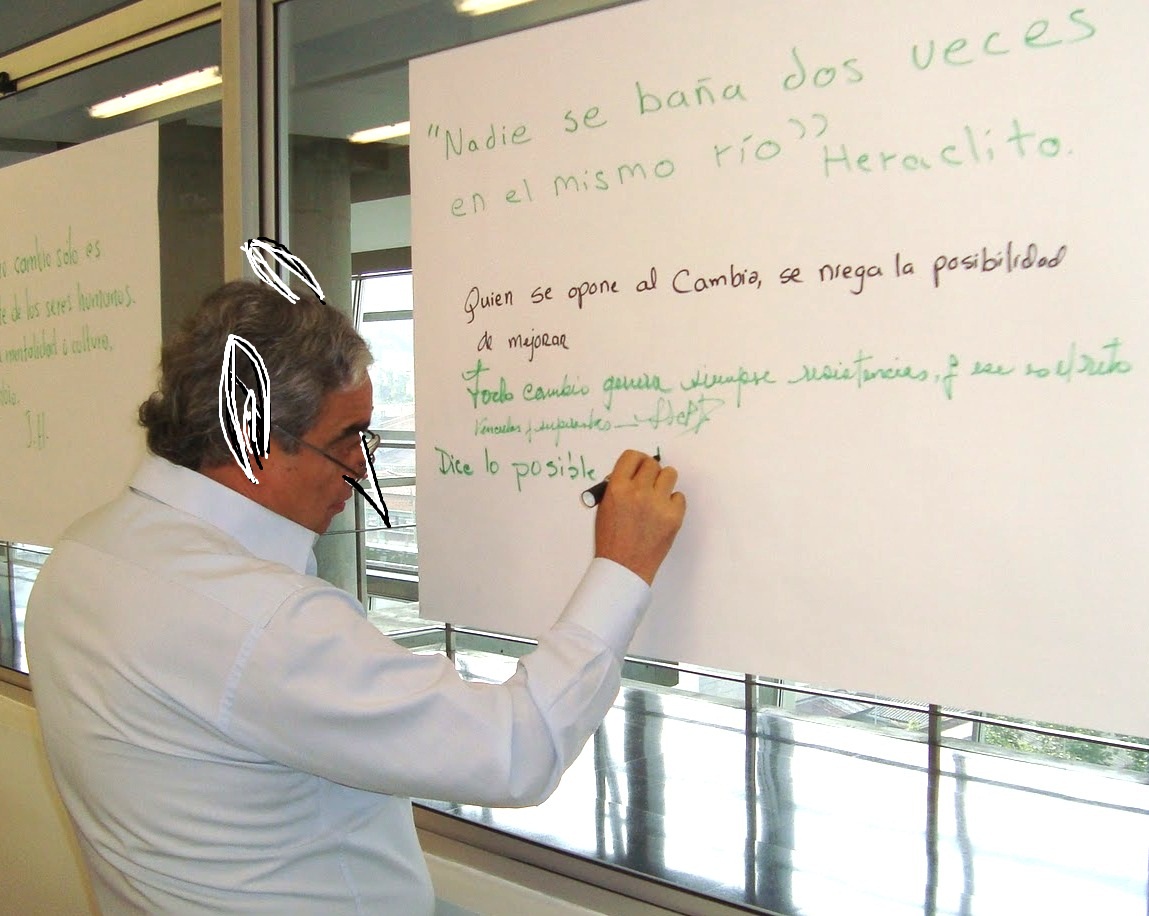 cambio solo es
de los seres humanos.
mentalidad o cultura,
J.H.
"Nadie se baña dos veces
en el mismo río" Heraclito.
Quien se opone al Cambio, se niega la posibilidad
de mejorar
Todo cambio genera siempre resistencias, y ese es el reto
Dice lo posible